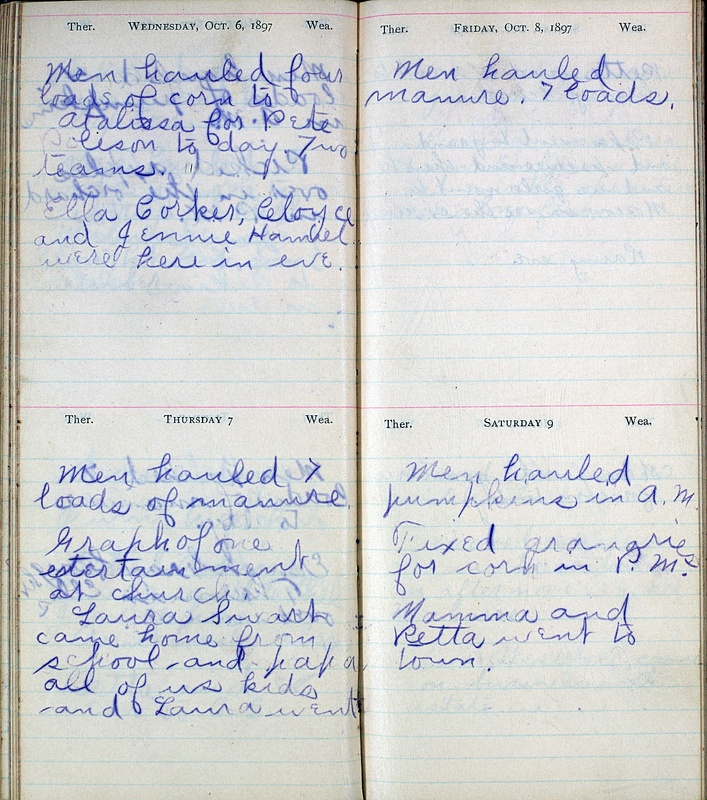 Ther. WEDNESDAY, OCT. 6, 1897 Wea.
Men hauled four
loads of corn to
Atalissa for Pete
to day. Two
teams.
Ella Corker, Cloyce
and Jennie Hamiel
were here in eve.
Ther. THURSDAY 7 Wea.
Men hauled 7
loads of manure.
Graphofone
estertainement
at church.
Laura Swart
came home from
school and papa
all of us kids
and Laura went
Ther. FRIDAY, OCT. 8, 1897 Wea.
Men hauled
manure. 7 loads.
Ther. SATURDAY 9 Wea.
Men hauled
pumpkins in A.M.
Fixed granarie
for corn in P.M.
Mamma and
Retta went to
town